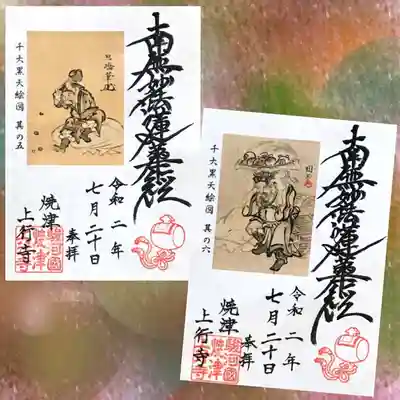 南無妙法蓮華経
千大黒天絵図 其の五
令和二年
七月二十日
奉拝
焼津
上行寺
駿河國
焼津
南無妙法蓮華経
千大黒天絵図 其の六
令和二年
七月二十日
奉拝
焼津
上行寺
駿河國
焼津